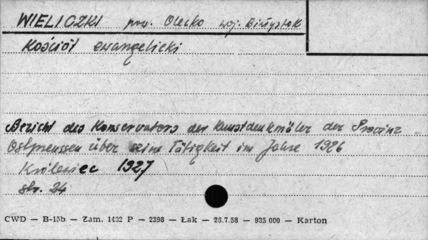 WIELICZKI pow. Olecko woj. Białystok
Kościół ewangelicki
Bericht des Konservators der Kunstdenkmäler der Provinz
Ostpreussen über seine Tätigkeit im Jahre 1926
Królewiec 1927
str. 24
CWD — B-15b — Zam. 1432 P — 2398 — Łak — 26.7.58 — 935 000 — Karton